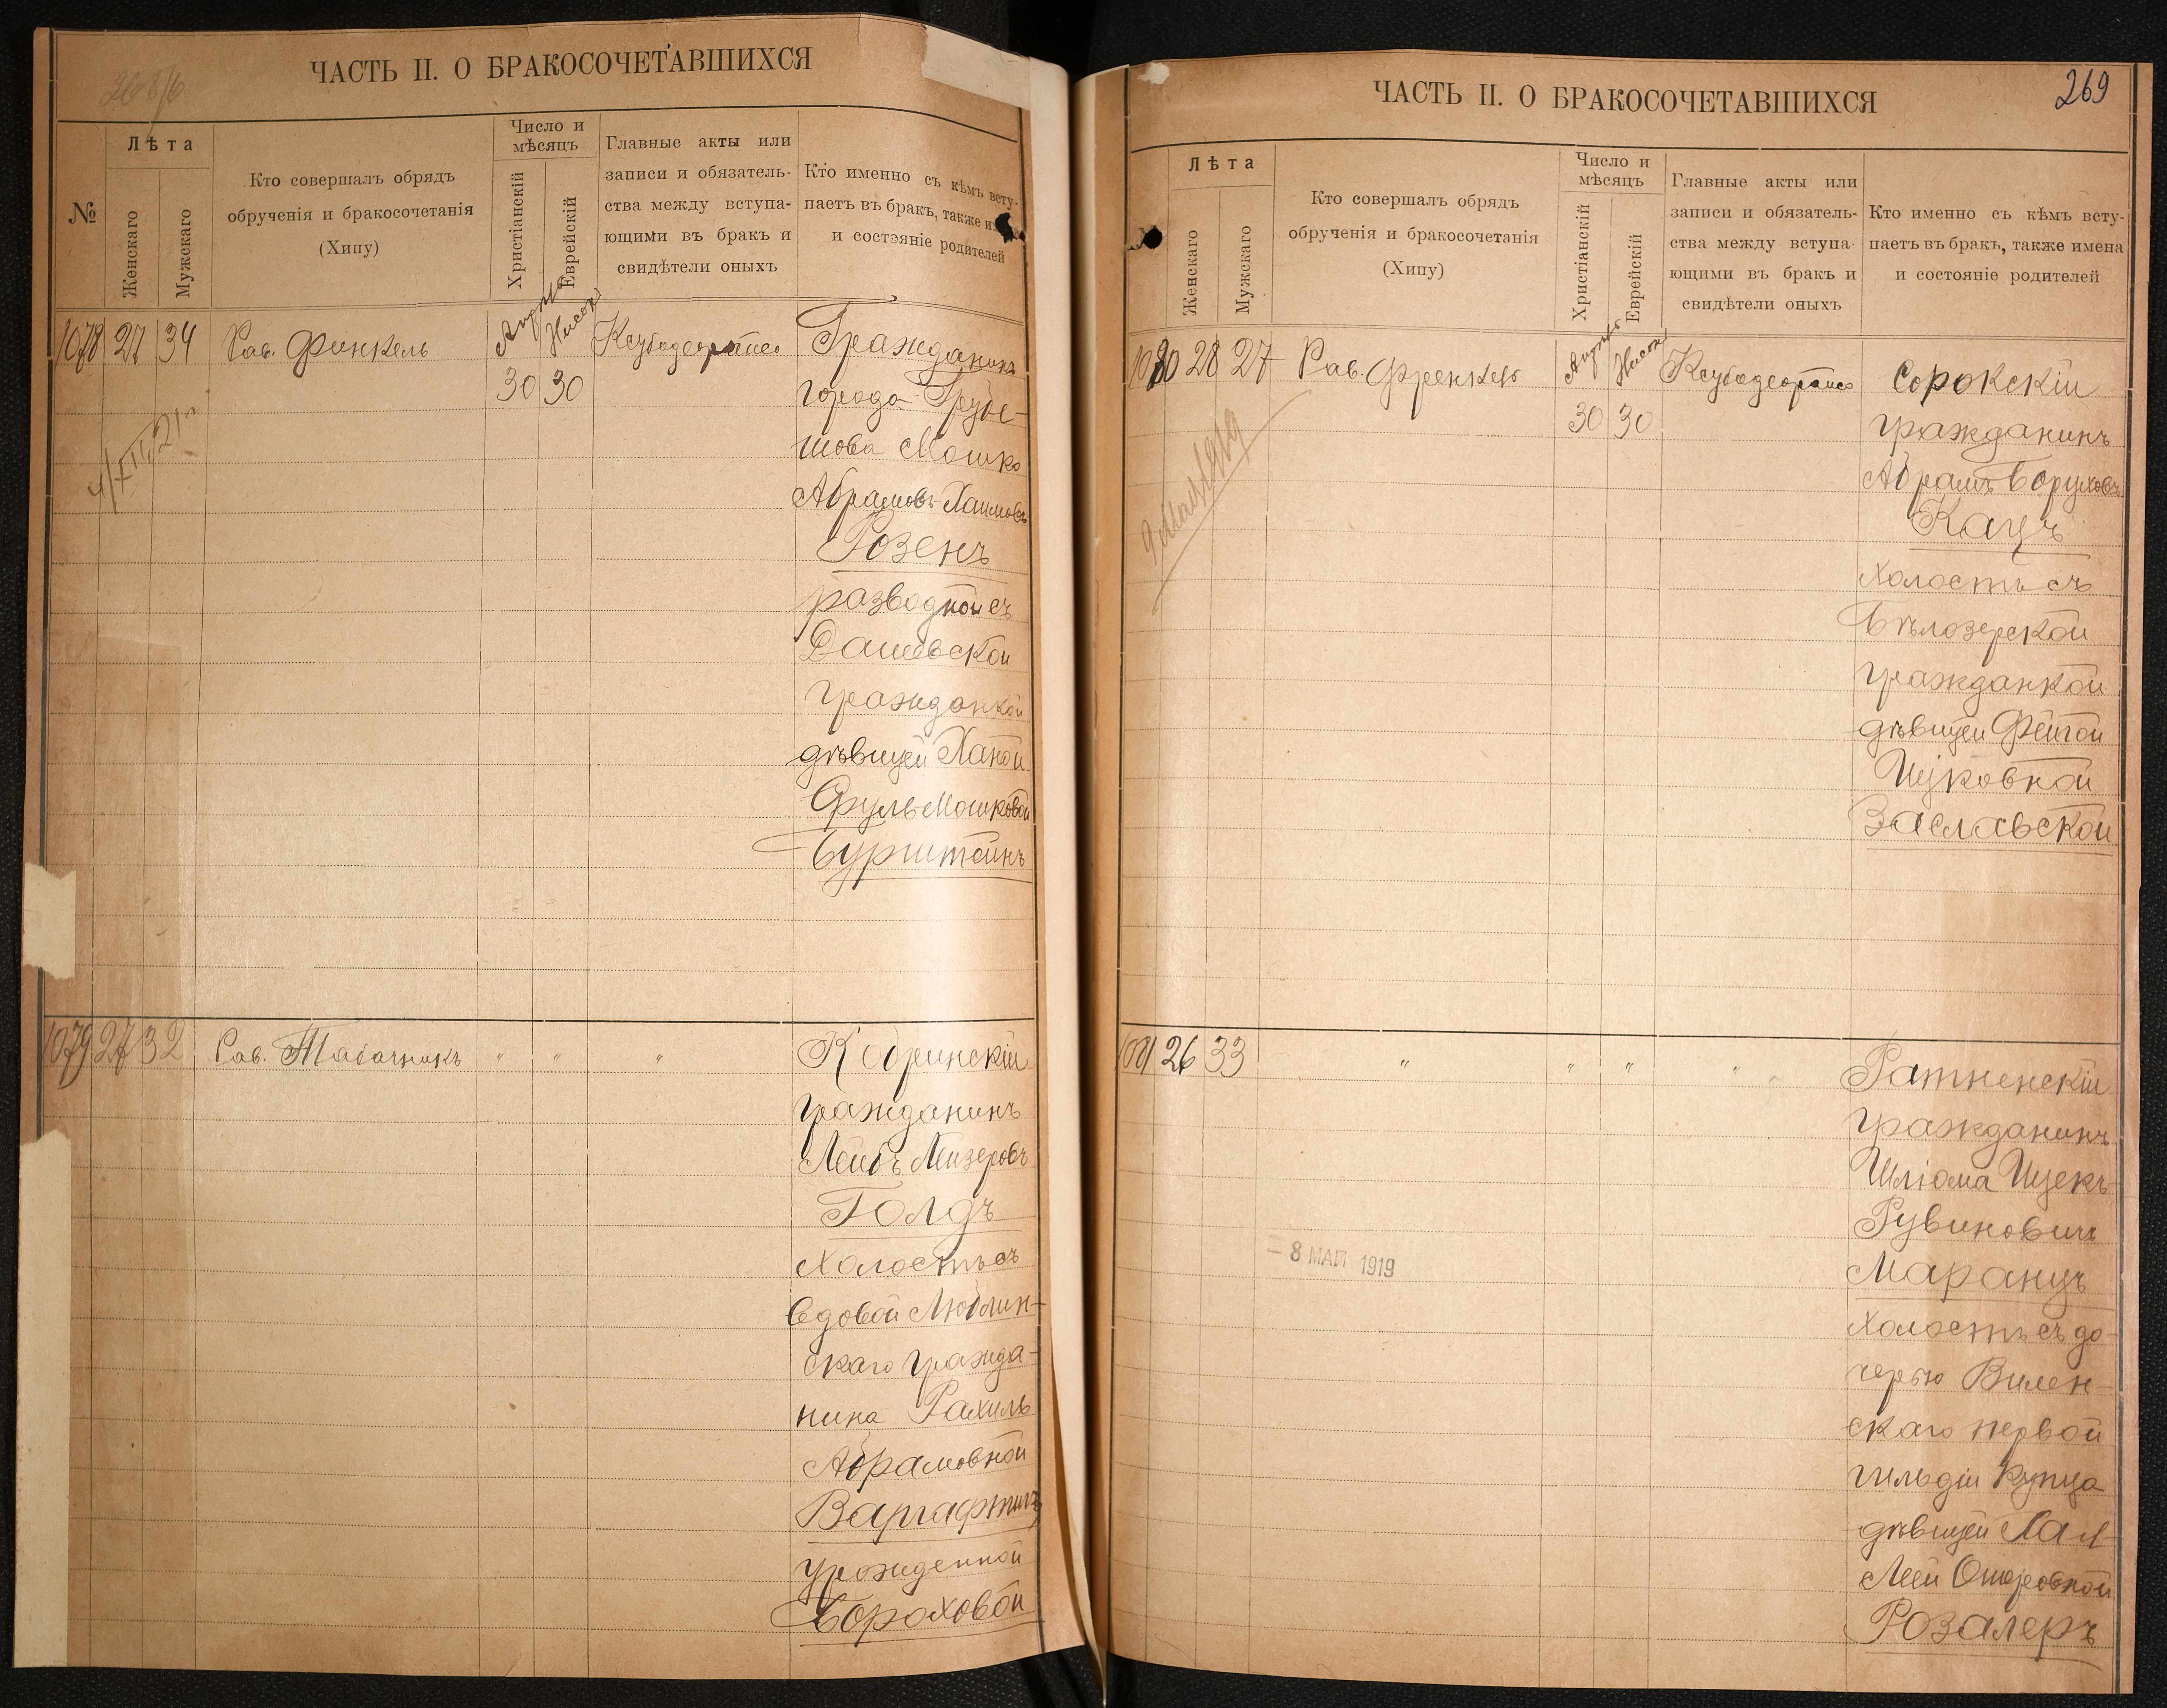 ЧАСТЬ II. О БРАКОСОЧЕТАВШИХСЯ
№
Лѣта
Женскаго
Мужскаго
Кто совершалъ обрядъ
обрученія и бракосочетанія
(Хипу)
Число и
мѣсяцъ
Христіанскій
Еврейскій
Главные акты или
записи и обязатель-
ства между вступа-
ющими въ бракъ и
свидѣтели оныхъ
Кто именно съ кѣмъ всту-
паетъ въ бракъ, также
и состояніе родителей
1078 27 34 Рав. Финкель
30 30
Гражданинъ
города Грубе-
шова Мошко
Абрамовъ-Хаимовъ
Розенъ
разводной съ
Дашевской
гражданкой
дѣвицей Ханой
Фуль Мошковой
Бурштейнъ
4/XII 21
1079 27 32 Рав. Табачникъ " " "
Кобринскій
гражданинъ
Лейбъ Лейзеровъ
Голдъ
холостъ съ
вдовой Люблин-
скаго гражда-
нина Рахиль
Абрамовной
Варгафтигъ
урожденной
Бороховой
ЧАСТЬ II. О БРАКОСОЧЕТАВШИХСЯ
269
Лѣта
Женскаго
Мужскаго
Кто совершалъ обрядъ
обрученія и бракосочетанія
(Хипу)
Число и
мѣсяцъ
Христіанскій
Еврейскій
Главные акты или
записи и обязатель-
ства между вступа-
ющими въ бракъ и
свидѣтели оныхъ
Кто именно съ кѣмъ всту-
паетъ въ бракъ, также имена
и состояніе родителей
1080 28 27 Рав. Френкель
30 30
Сорокскій
гражданинъ
Абрамъ Боруховъ
Кацъ
холостъ съ
Бѣлозерской
гражданкой
дѣвицей Фейгой
Ицковной
Заславской
1081 26 33 " " " "
Ратненскій
гражданинъ
Шліома Ицекъ
Рувиновичъ
Маранцъ
холостъ съ до-
черью Вилен-
скаго первой
гильдіи Купца
дѣвицей Хая
Леей Ошеровной
Розалеръ
– 8 МАЙ 1919